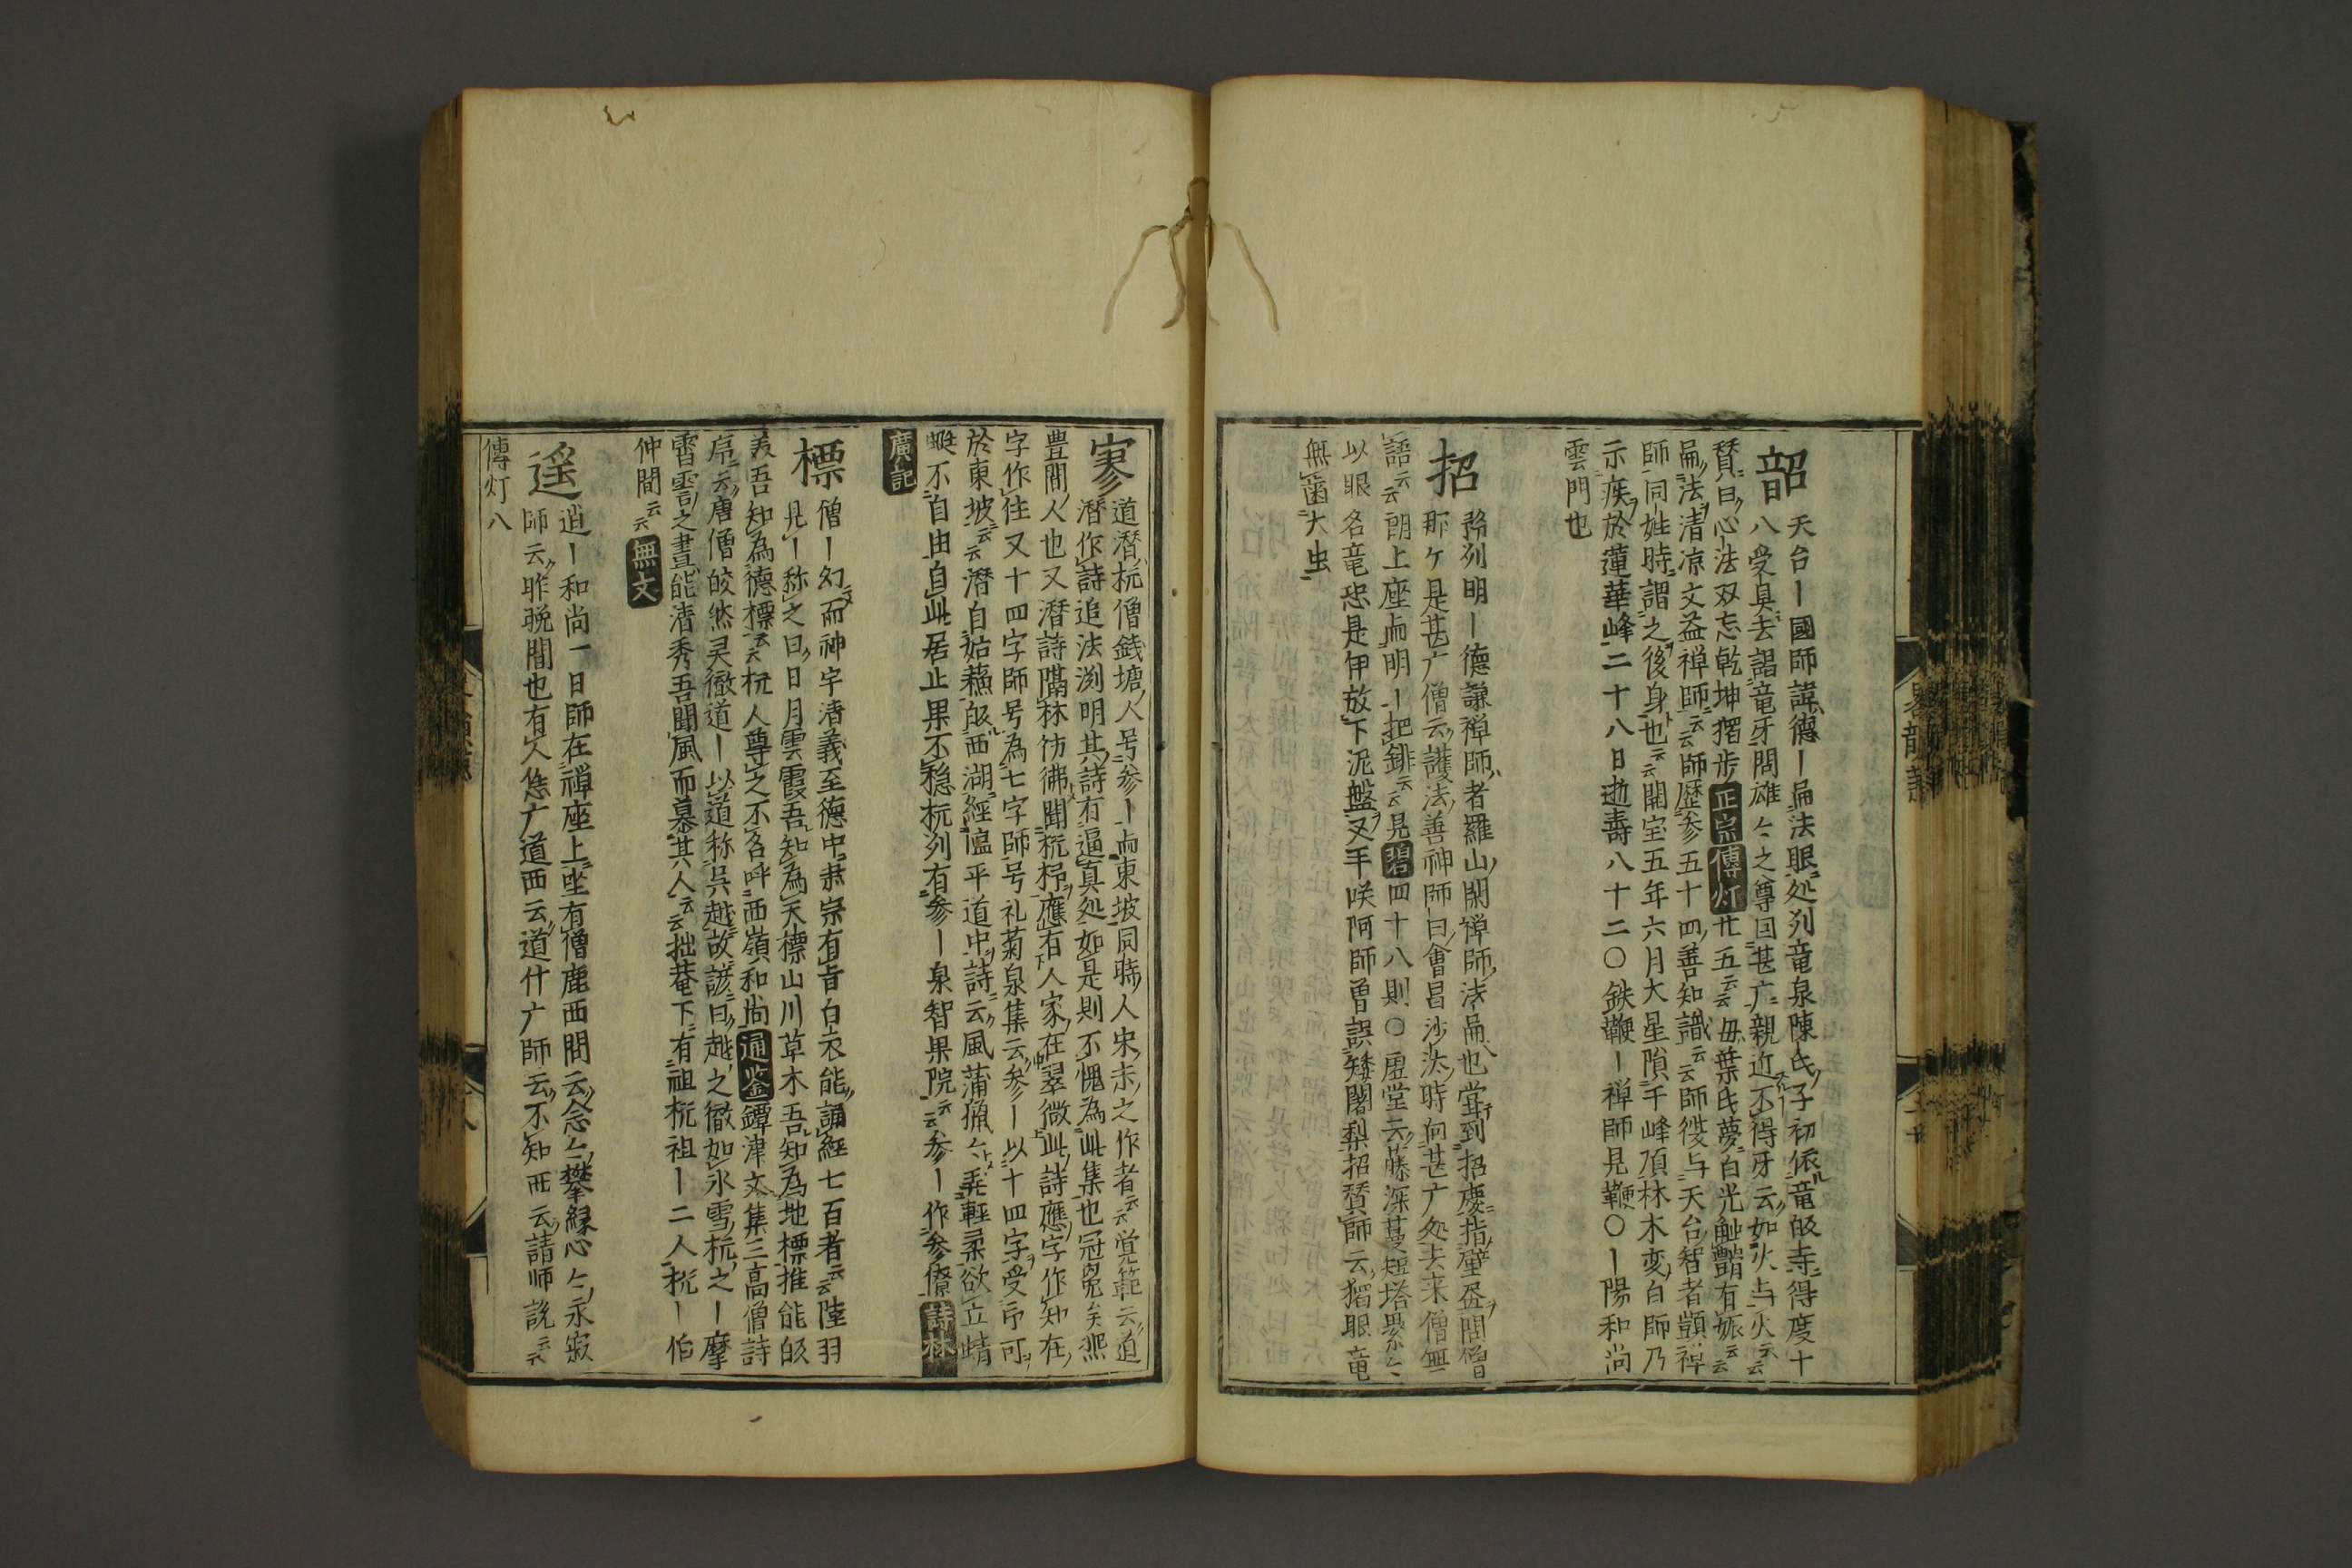 韶
天台ー國師諱德ー扁法眼処列竜泉陳氏子初依竜皈寺得度十
八受具去謁竜牙問雄々之尊因甚广親近不得牙云如火与火云云
賛曰心法双忘乾坤獨步正宗傳灯廿五云云母葉氏夢白光触體有娠云云
扁法清凉文益禅師云云師歷参五十四善知識云云師後与天台智者顗禅
師同姓時謂之後身也云云開宝五年六月大星隕于峰頂林木変白師乃
示疾於蓮華峰二十八日逝壽八十二〇鉄鞭ー禅師見鞭〇ー陽和尚
雲門也
招
列明ー德謙禅師者羅山閑禅師法扁也嘗到招慶指壁畫問僧
那ケ是甚广僧云護法善神師曰會昌沙汰時向甚广処去来僧無
語云云朗上座扁明ー把銚云云見碧四十八則〇虚堂云藤深蔓短塔累々
以眼名竜恐是伊放下泥盤叉手咲阿師曽誤矮闍梨招賛師云獨眼竜
無歯大虫
寥
道潜杭僧錢塘人号参ー扁東坡同時人宋末之作者云云覚範云道
潜作詩追法渕明其詩有逼真処如是則不愧為此集也冠冕矣熙
豊間人也又潜詩隔林彷彿聞杭杼應右人家在翠微此詩應字作知在
字作住又十四字師号為七字師号礼菊泉集云参ー以十四字受印可
於東坡云云潜自姑蘓皈西湖經臨平道中詩云風蒲猟々弄輕柔欲立蜻
蜓不自由自此居止果不穏杭列有参ー泉智果院云云参ー作参僚詩林
廣記
標
僧ー幻而神宇渚義至德中肃宗有旨白衣能誦經七百者云云陸羽
見ー称之曰日月雲霞吾知為天標山川草木吾知為地標推能皈
義吾知為德標云云杭人尊之不名呼西嶺和尚通鉴鐔津文集三高僧詩
序云唐僧皎然灵徹道ー以道称呉越故諺曰越之徹如氷雪杭之ー摩
霄雲之晝能清秀吾聞風而慕其人云云拙菴下有祖杭祖ー二人杭ー伯
仲間云云無文
遥
逍ー和尚一日師在禅座上坐有僧鹿西問云念々攀緣心々永寂
師云昨晩間也有人恁广道西云道什广師云不知西云請师説云云
傳灯八